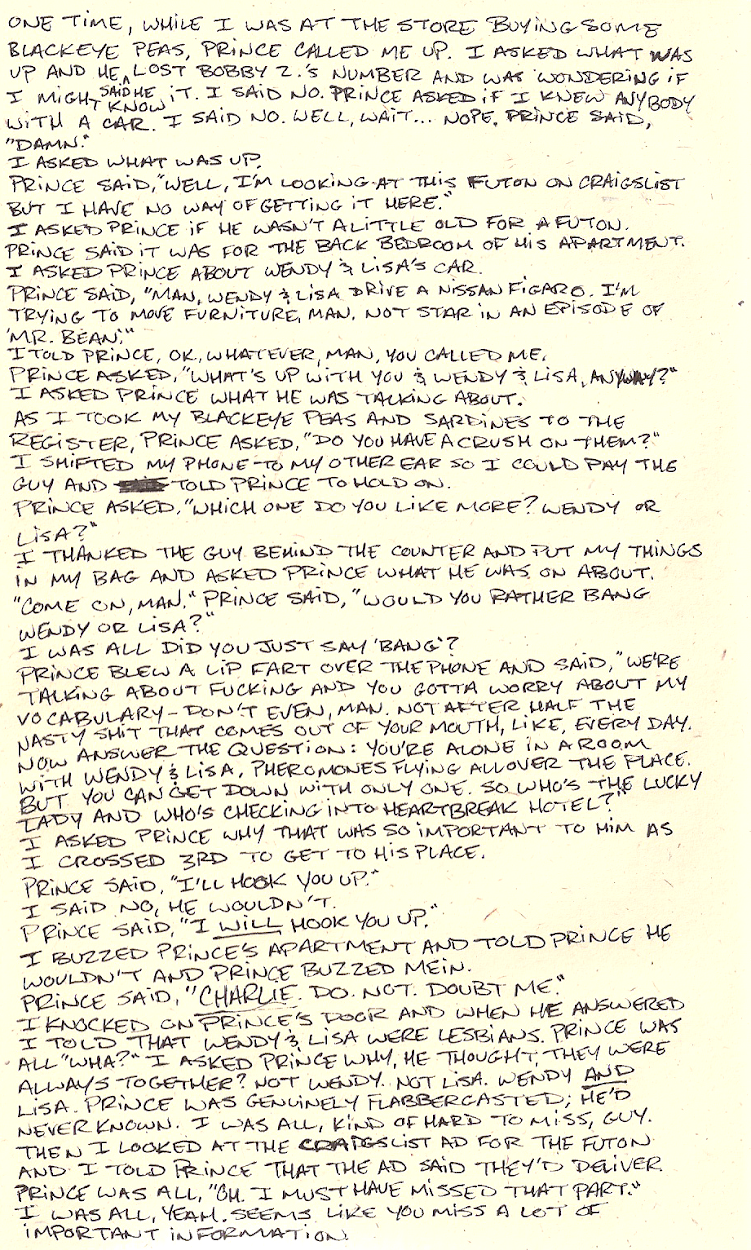 ONE TIME, WHILE I WAS AT THE STORE BUYING SOME
BLACKEYE PEAS, PRINCE CALLED ME UP. I ASKED WHAT WAS
UP AND HE SAID HE LOST BOBBY Z.'S NUMBER AND WAS WONDERING IF
I MIGHT KNOW IT. I SAID NO. PRINCE ASKED IF I KNEW ANYBODY
WITH A CAR. I SAID NO. WELL, WAIT... NOPE. PRINCE SAID,
"DAMN."
I ASKED WHAT WAS UP.
PRINCE SAID, "WELL, I'M LOOKING AT THIS FUTON ON CRAIGSLIST
BUT I HAVE NO WAY OF GETTING IT HERE."
I ASKED PRINCE IF HE WASN'T A LITTLE OLD FOR A FUTON.
PRINCE SAID IT WAS FOR THE BACK BEDROOM OF HIS APARTMENT.
I ASKED PRINCE ABOUT WENDY & LISA'S CAR.
PRINCE SAID, "MAN, WENDY & LISA DRIVE A NISSAN FIGARO. I'M
TRYING TO MOVE FURNITURE, MAN, NOT STAR IN AN EPISODE OF
'MR. BEAN.'"
I TOLD PRINCE, OK, WHATEVER, MAN, YOU CALLED ME.
PRINCE ASKED, "WHAT'S UP WITH YOU & WENDY & LISA, ANYWAY?"
I ASKED PRINCE WHAT HE WAS TALKING ABOUT.
AS I TOOK MY BLACKEYE PEAS AND SARDINES TO THE
REGISTER, PRINCE ASKED, "DO YOU HAVE A CRUSH ON THEM?"
I SHIFTED MY PHONE TO MY OTHER EAR SO I COULD PAY THE
GUY AND TOLD PRINCE TO HOLD ON.
PRINCE ASKED, "WHICH ONE DO YOU LIKE MORE? WENDY OR
LISA?"
I THANKED THE GUY BEHIND THE COUNTER AND PUT MY THINGS
IN MY BAG AND ASKED PRINCE WHAT HE WAS ON ABOUT.
"COME ON, MAN." PRINCE SAID, "WOULD YOU RATHER BANG
WENDY OR LISA?"
I WAS ALL DID YOU JUST SAY 'BANG'?
PRINCE BLEW A LIP FART OVER THE PHONE AND SAID, "WE'RE
TALKING ABOUT FUCKING AND YOU GOTTA WORRY ABOUT MY
VOCABULARY - DON'T EVEN, MAN. NOT AFTER HALF THE
NASTY SHIT THAT COMES OUT OF YOUR MOUTH, LIKE, EVERY DAY.
NOW ANSWER THE QUESTION: YOU'RE ALONE IN A ROOM
WITH WENDY & LISA, PHEROMONES FLYING ALL OVER THE PLACE.
BUT YOU CAN GET DOWN WITH ONLY ONE. SO WHO'S THE LUCKY
LADY AND WHO'S CHECKING INTO HEARTBREAK HOTEL?"
I ASKED PRINCE WHY THAT WAS SO IMPORTANT TO HIM AS
I CROSSED 3RD TO GET TO HIS PLACE.
PRINCE SAID, "I'LL HOOK YOU UP."
I SAID NO, HE WOULDN'T.
PRINCE SAID, "I WILL HOOK YOU UP."
I BUZZED PRINCE'S APARTMENT AND TOLD PRINCE HE
WOULDN'T AND PRINCE BUZZED ME IN.
PRINCE SAID, "CHARLIE. DO. NOT. DOUBT ME."
I KNOCKED ON PRINCE'S DOOR AND WHEN HE ANSWERED
I TOLD THAT WENDY & LISA WERE LESBIANS. PRINCE WAS
ALL "WHA?" I ASKED PRINCE WHY, HE THOUGHT, THEY WERE
ALLWAYS TOGETHER? NOT WENDY. NOT LISA. WENDY AND
LISA. PRINCE WAS GENUINELY FLABBERGASTED; HE'D
NEVER KNOWN. I WAS ALL, KIND OF HARD TO MISS, GUY.
THEN I LOOKED AT THE CRAIGSLIST AD FOR THE FUTON
AND I TOLD PRINCE THAT THE AD SAID THEY'D DELIVER.
PRINCE WAS ALL, "OH. I MUST HAVE MISSED THAT PART."
I WAS ALL, YEAH. SEEMS LIKE YOU MISS A LOT OF
IMPORTANT INFORMATION.